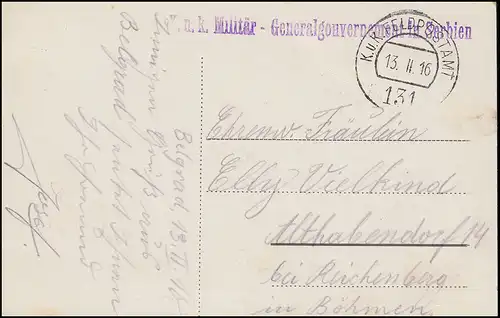 u. k. Militär - Generalgouvernement in Serbien
K.u.K. FELDPOSTAMT
13. II. 16
131
Belgrad, 13. II. 16
Innigen Gruß aus
Belgrad sendet Ihnen
Ihr Freund
Josef.
Ehrenw Fräulein
Elly Vielkind
Althabendorf 14
bei Reichenberg
in Böhmen